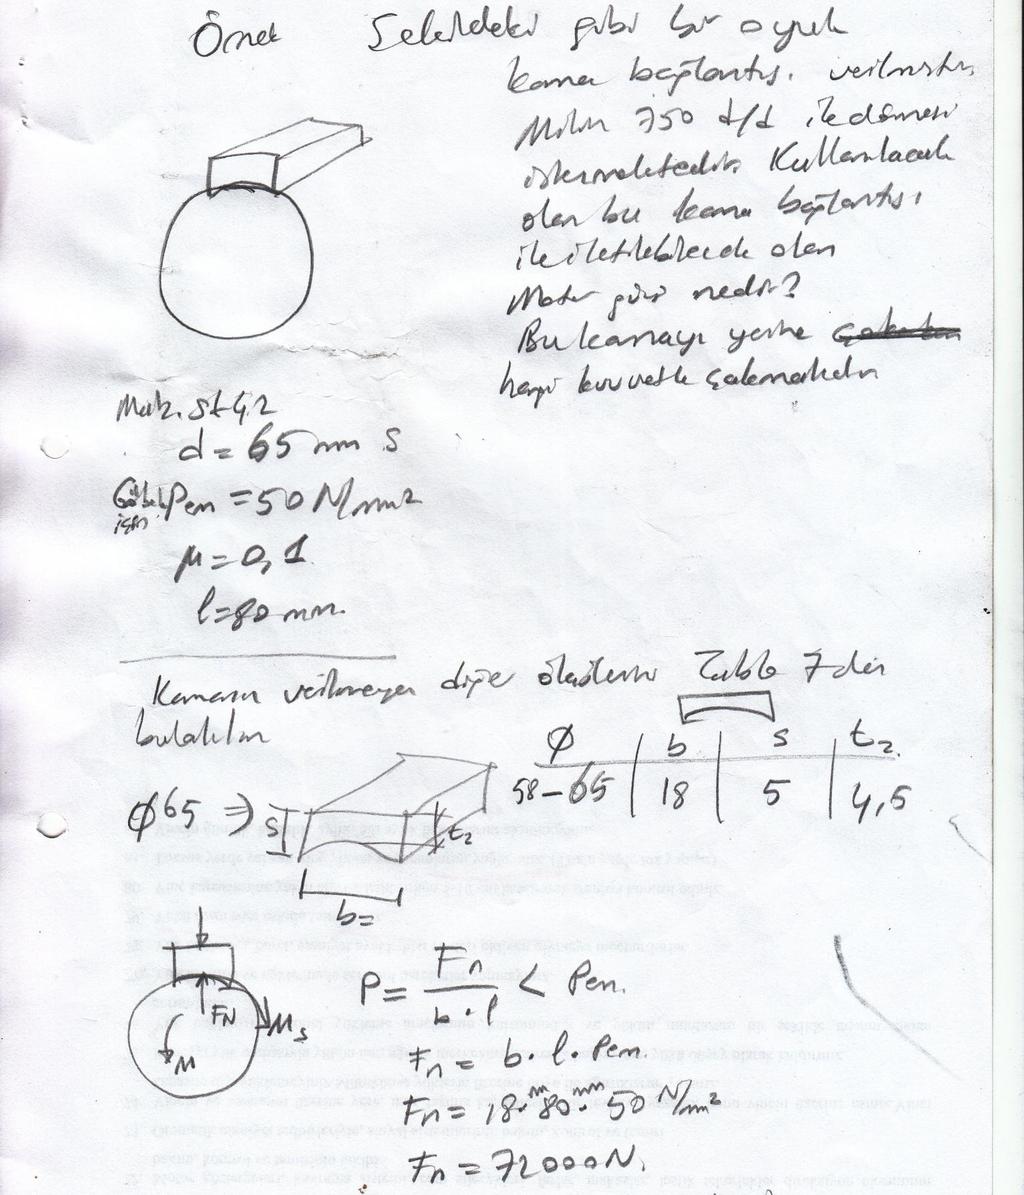 Örnek Şekildeki gibi bir oyuk
kama bağlantısı verilmiştir
Milin 750 d/d ile dönmesi
istenmektedir. Kullanılacak
olan bu kama bağlantısı
ile iletilebilecek olan
Motor gücü nedir?
Bu kamayı yerine
hangi kuvvetle çakmak
Mak. st 42
d = 65 mm
Göbek için Pem = 50 N/mm²
μ = 0,1
l = 80 mm.
Kamanın verilmeyen diğer ölçülerini Tablo 7 den
bulalım
Ø b s t₂
58-65 18 5 4,5
Ø65 ⇒ s t₂
b =
FN Ms
M
P = Fn / b · l < Pem.
Fn = b · l · Pem.
Fn = 18 mm · 80 mm · 50 N/mm²
Fn = 72000 N.